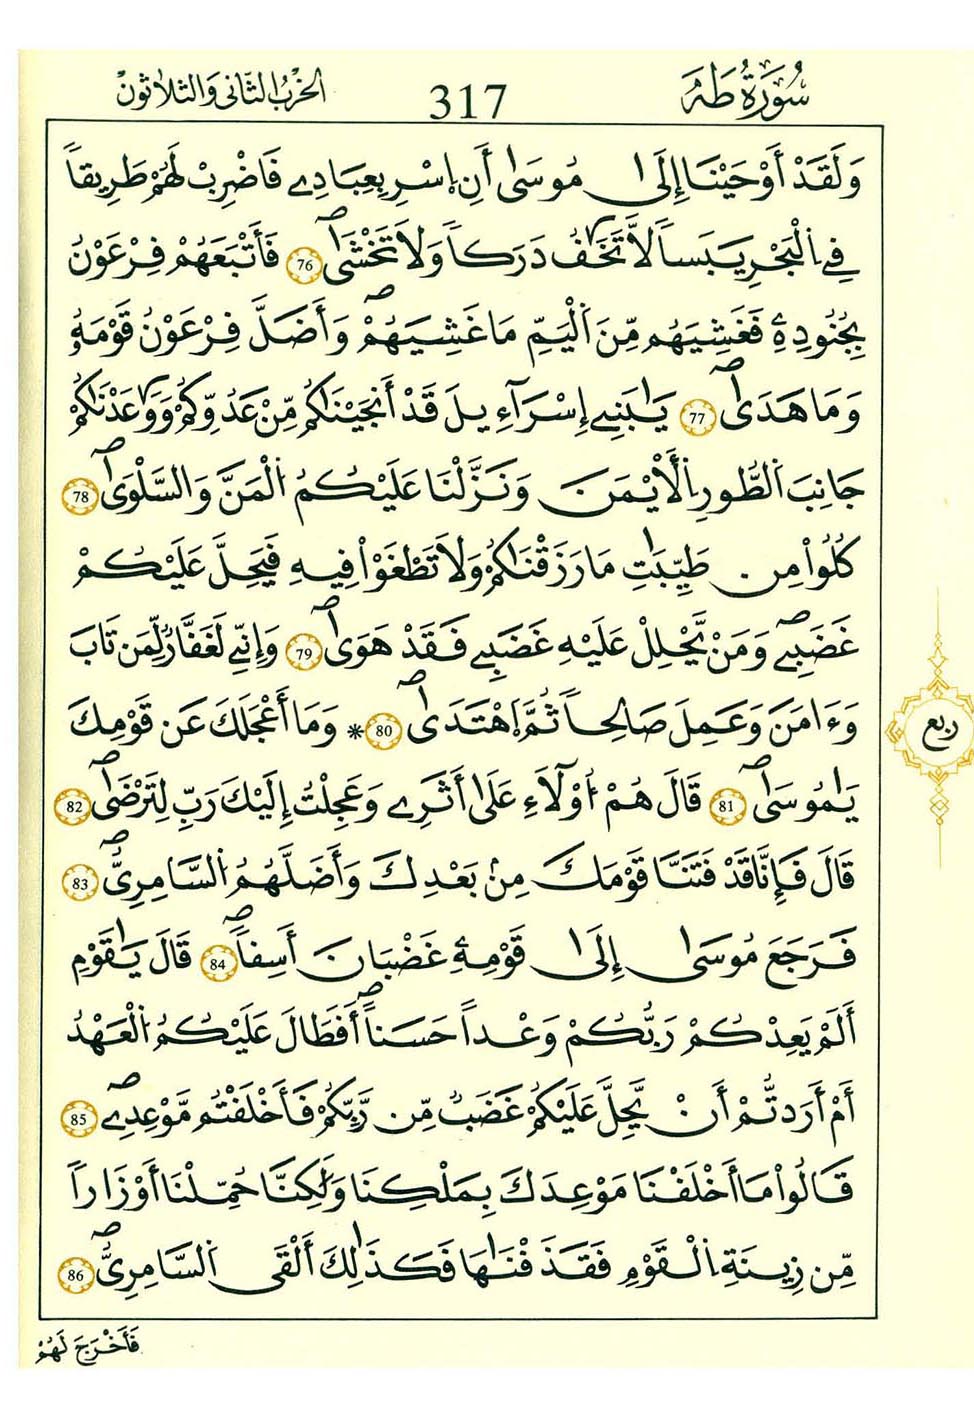 سُورَةُ طَهَ
317
الحِزْبُ الثَّانِي وَالثَّلَاثُونْ
وَلَقَدْ أَوْحَيْنَا إِلَىٰ مُوسَىٰ أَنِ اِسْرِ بِعِبَادِے فَاضْرِبْ لَهُمْ طَرِيقاً
فِے اِ۬لْبَحْرِ يَبَساً لَّا تَخَٰفُ دَرَكاً وَلَا تَخْشَىٰ 76 فَأَتْبَعَهُمْ فِرْعَوْنُ
بِجُنُودِهِۦ فَغَشِيَهُم مِّنَ اَ۬لْيَمِّ مَا غَشِيَهُمْ وَأَضَلَّ فِرْعَوْنُ قَوْمَهُۥ
وَمَا هَدَىٰ 77 يَٰبَنِےٓ إِسْرَآءِيلَ قَدْ أَنجَيْنَٰكُم مِّنْ عَدُوِّكُمْ وَوَٰعَدْنَٰكُمْ
جَانِبَ اَ۬لطُّورِ اِ۬لْأَيْمَنَ وَنَزَّلْنَا عَلَيْكُمُ اُ۬لْمَنَّ وَالسَّلْوَىٰ 78
كُلُواْ مِن طَيِّبَٰتِ مَا رَزَقْنَٰكُمْ وَلَا تَطْغَوْاْ فِيهِ فَيَحِلَّ عَلَيْكُمْ
غَضَبِے وَمَنْ يَّحْلِلْ عَلَيْهِ غَضَبِے فَقَدْ هَوَىٰ 79 وَإِنِّے لَغَفَّارٌ لِّمَن تَابَ
وَءَامَنَ وَعَمِلَ صَالِحاً ثُمَّ اَ۪هْتَدَىٰ 80 * وَمَا أَعْجَلَكَ عَن قَوْمِكَ
يَٰمُوسَىٰ 81 قَالَ هُمْ أُوْلَآءِ عَلَىٰ أَثَرِے وَعَجِلْتُ إِلَيْكَ رَبِّ لِتَرْضَىٰ 82
قَالَ فَإِنَّا قَدْ فَتَنَّا قَوْمَكَ مِنۢ بَعْدِكَ وَأَضَلَّهُمُ اُ۬لسَّامِرِيُّ 83
فَرَجَعَ مُوسَىٰ إِلَىٰ قَوْمِهِۦ غَضْبَانَ أَسِفاً 84 قَالَ يَٰقَوْمِ
أَلَمْ يَعِدْكُمْ رَبُّكُمْ وَعْداً حَسَناً أَفَطَالَ عَلَيْكُمُ اُ۬لْعَهْدُ
أَمْ أَرَدتُّمْ أَنْ يَّحِلَّ عَلَيْكُمْ غَضَبٌ مِّن رَّبِّكُمْ فَأَخْلَفْتُم مَّوْعِدِے 85
قَالُواْ مَا أَخْلَفْنَا مَوْعِدَكَ بِمَلْكِنَا وَلَٰكِنَّا حُمِّلْنَا أَوْزَاراً
مِّن زِينَةِ اِ۬لْقَوْمِ فَقَذَفْنَٰهَا فَكَذَٰلِكَ أَلْقَى اَ۬لسَّامِرِيُّ 86
ربع
فَأَخْرَجَ لَهُمْ